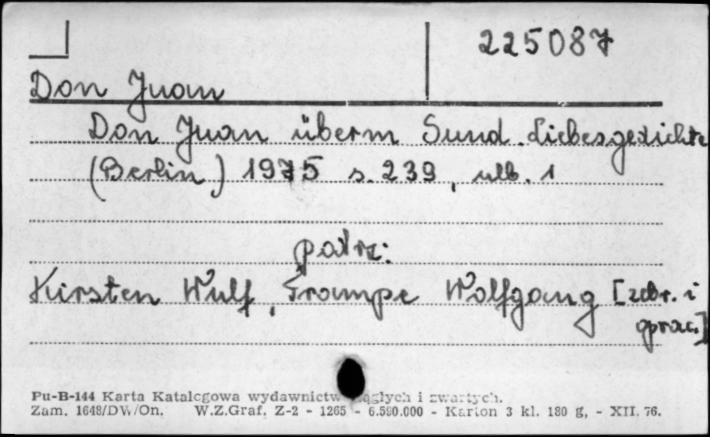 225087
Don Juan
Don Juan überm Sund. Liebesgedichte
(Berlin) 1975 s. 239, nlb. 1
patrz:
Kirsten Wulf, Trampe Wolfgang [zebr. i
oprac.]
Pu-B-144 Karta Katalogowa wydawnictw ciągłych i zwartych.
Zam. 1648/DW/On. W.Z.Graf. Z-2 - 1265 - 6.590.000 - Karton 3 kl. 180 g, - XII. 76.